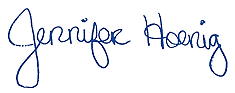 Jennifer Hoenig